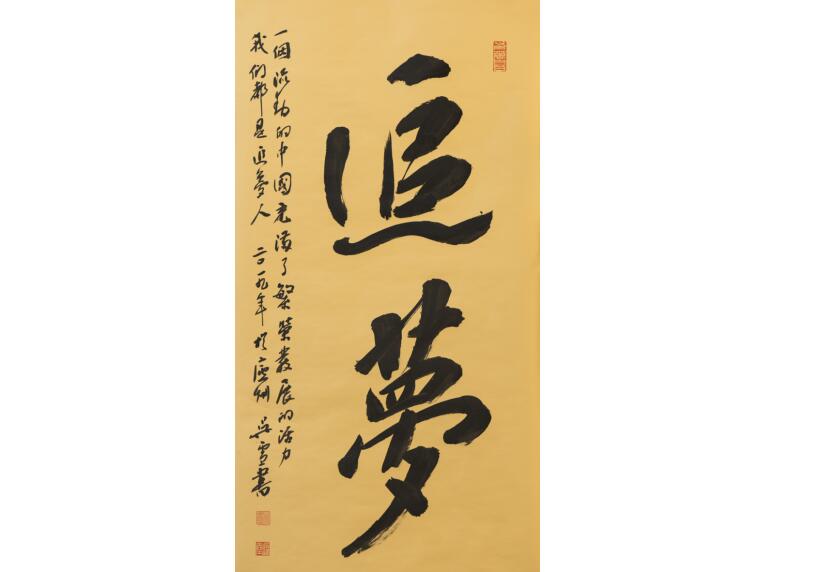 追夢
一個流動的中國充滿了繁榮發展的活力
我们都是追夢人 二〇一九年於廬州 吴雪書